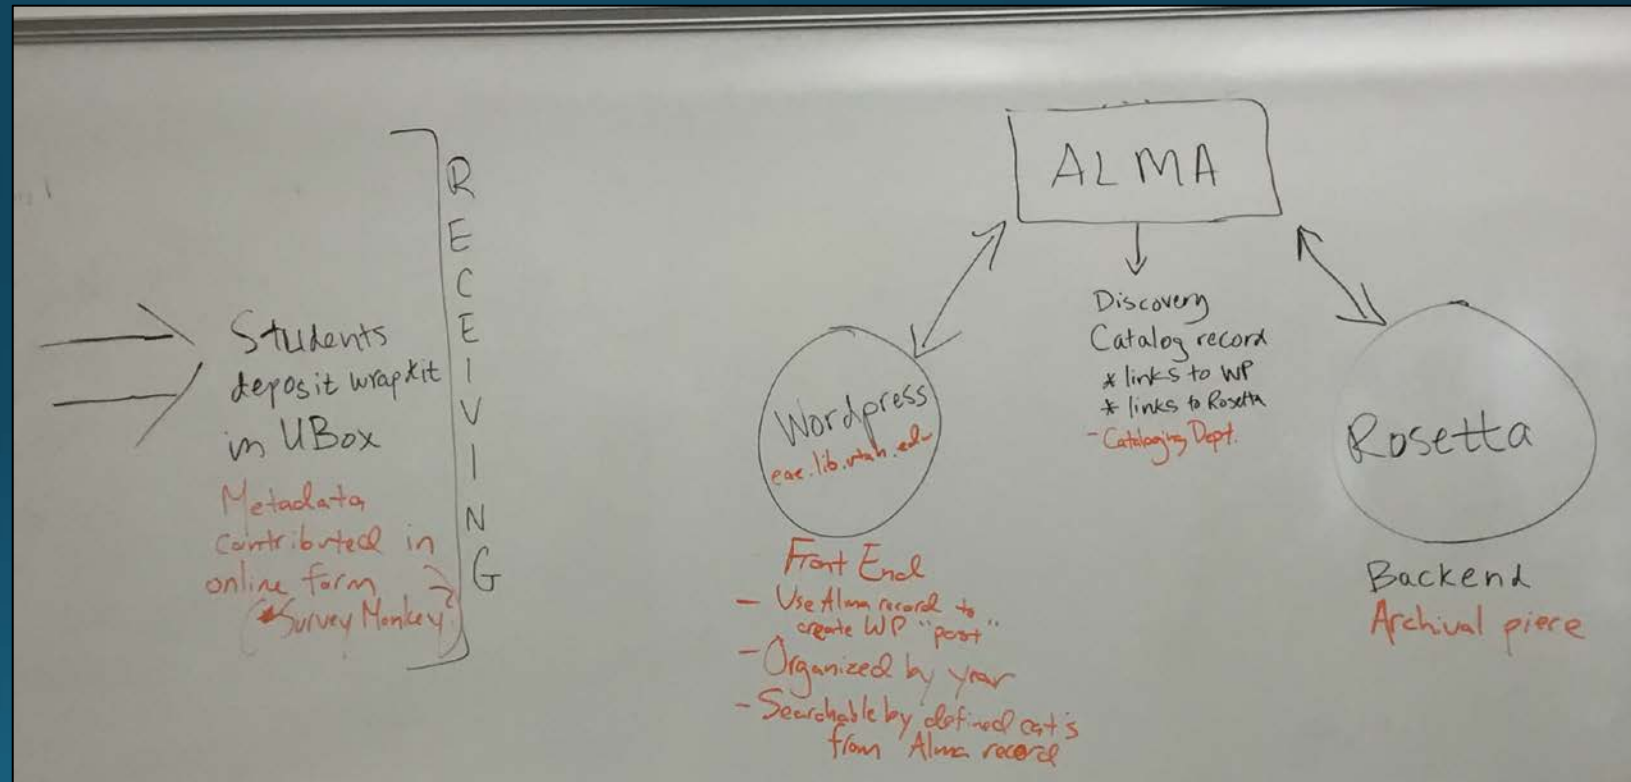 Students
deposit wrapkit
in UBox
Metadata
contributed in
online form
(*Survey Monkey?)
RECEIVING
ALMA
Discovery
Catalog record
* links to WP
* links to Rosetta
- Cataloging Dept.
Wordpress
eae.lib.utah.edu
Front End
- Use Alma record to
create WP "post"
- Organized by year
- Searchable by defined cat's
from Alma record
Rosetta
Backend
Archival piece